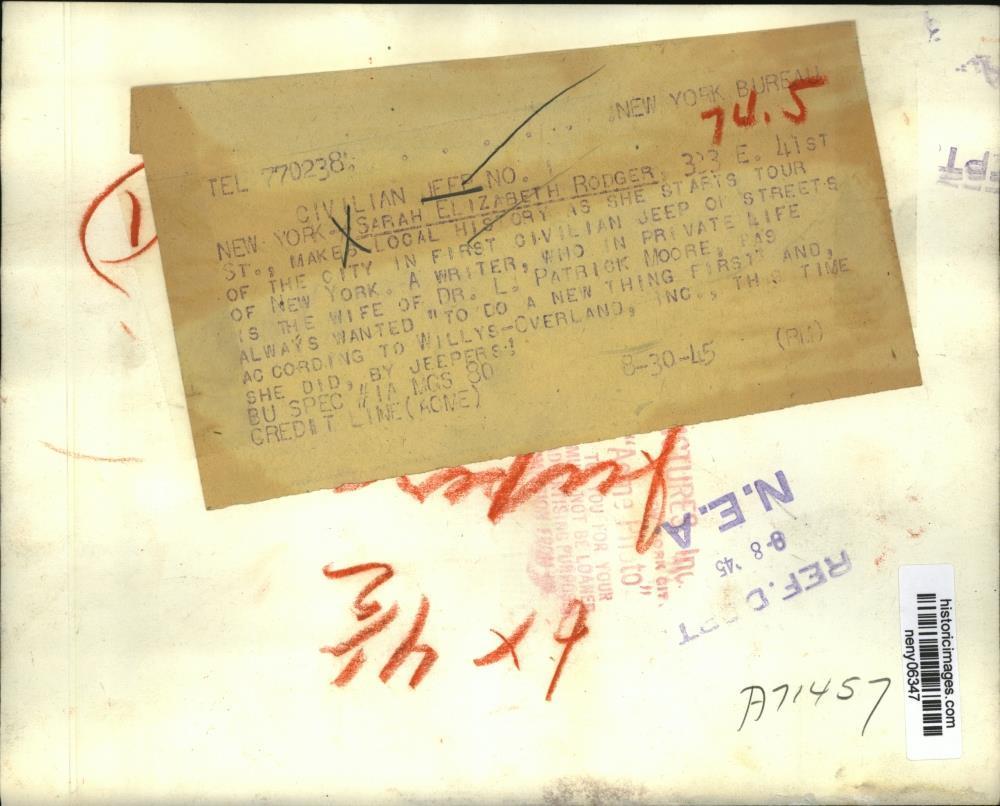 NEW YORK BUREAU
74.5
TEL 770238;
CIVILIAN JEEP NO. 1
NEW YORK--SARAH ELIZABETH RODGER, 323 E. 41ST
ST., MAKES LOCAL HISTORY AS SHE STARTS TOUR
OF THE CITY IN FIRST CIVILIAN JEEP ON STREETS
OF NEW YORK. A WRITER, WHO IN PRIVATE LIFE
IS THE WIFE OF DR. L. PATRICK MOORE, HAS
ALWAYS WANTED "TO DO A NEW THING FIRST" AND,
ACCORDING TO WILLYS-OVERLAND, INC., THIS TIME
SHE DID, BY JEEPERS!
BU SPEC #1A MGS 80
CREDIT LINE (ACME) 8-30-45 (RM)
1
N.E.A.
8 '45
REF. DEPT.
PICTURES, Inc.
YORK CITY
"Acme Photo"
YOU FOR YOUR
NOT BE LOANED
4 x 4 1/2
A71457
historicimages.com
neny06347